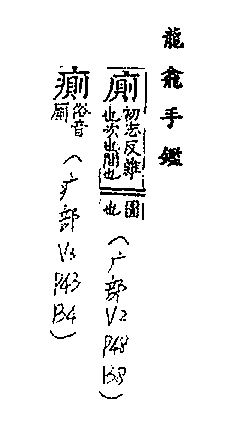 龍龕手鑑
廁
初志反雜
也次也間也
圊
也
(广部 V2 P48 B8)
俗音
廁
(疒部 V3 P43 B4)